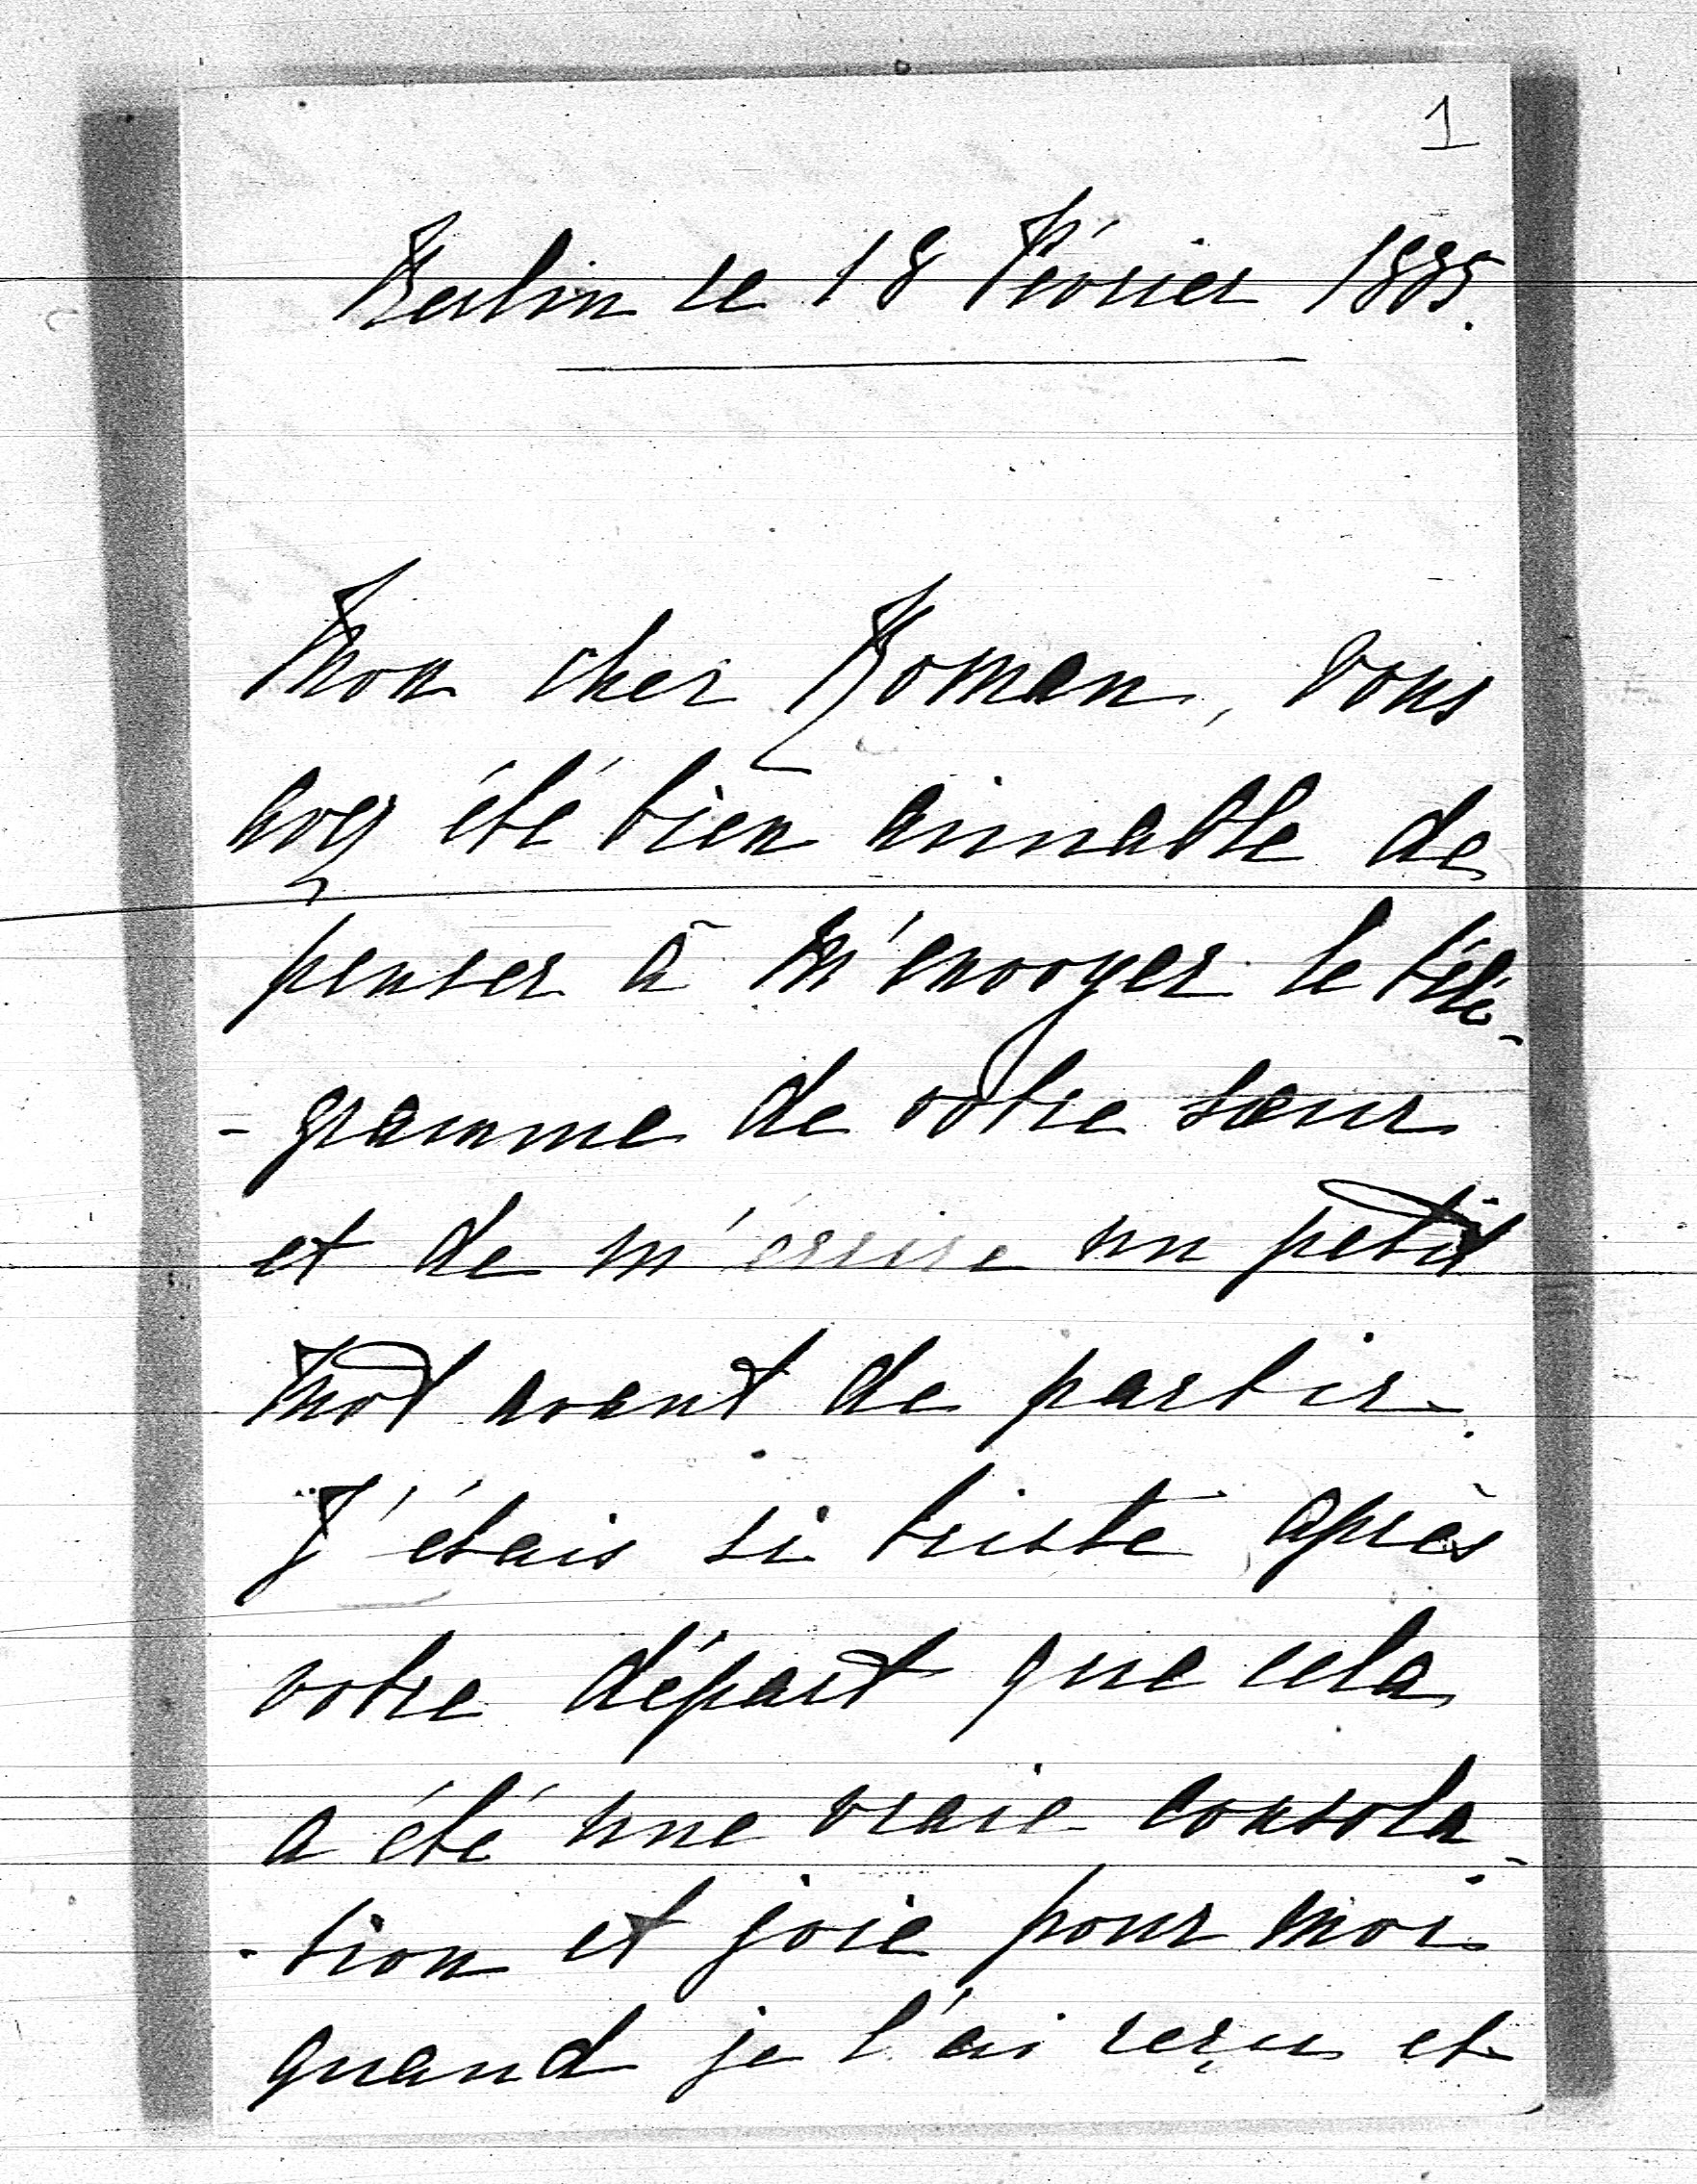 1
Berlin le 18 Février 1885.
Mon cher Roman, vous
avez été bien aimable de
penser à m'envoyer le télé-
-gramme de votre sœur
et de m'écrire un petit
mot avant de partir.
J'étais si triste après
votre départ que cela
a été une vraie consola-
-tion et joie pour moi
quand je l'ai reçu et